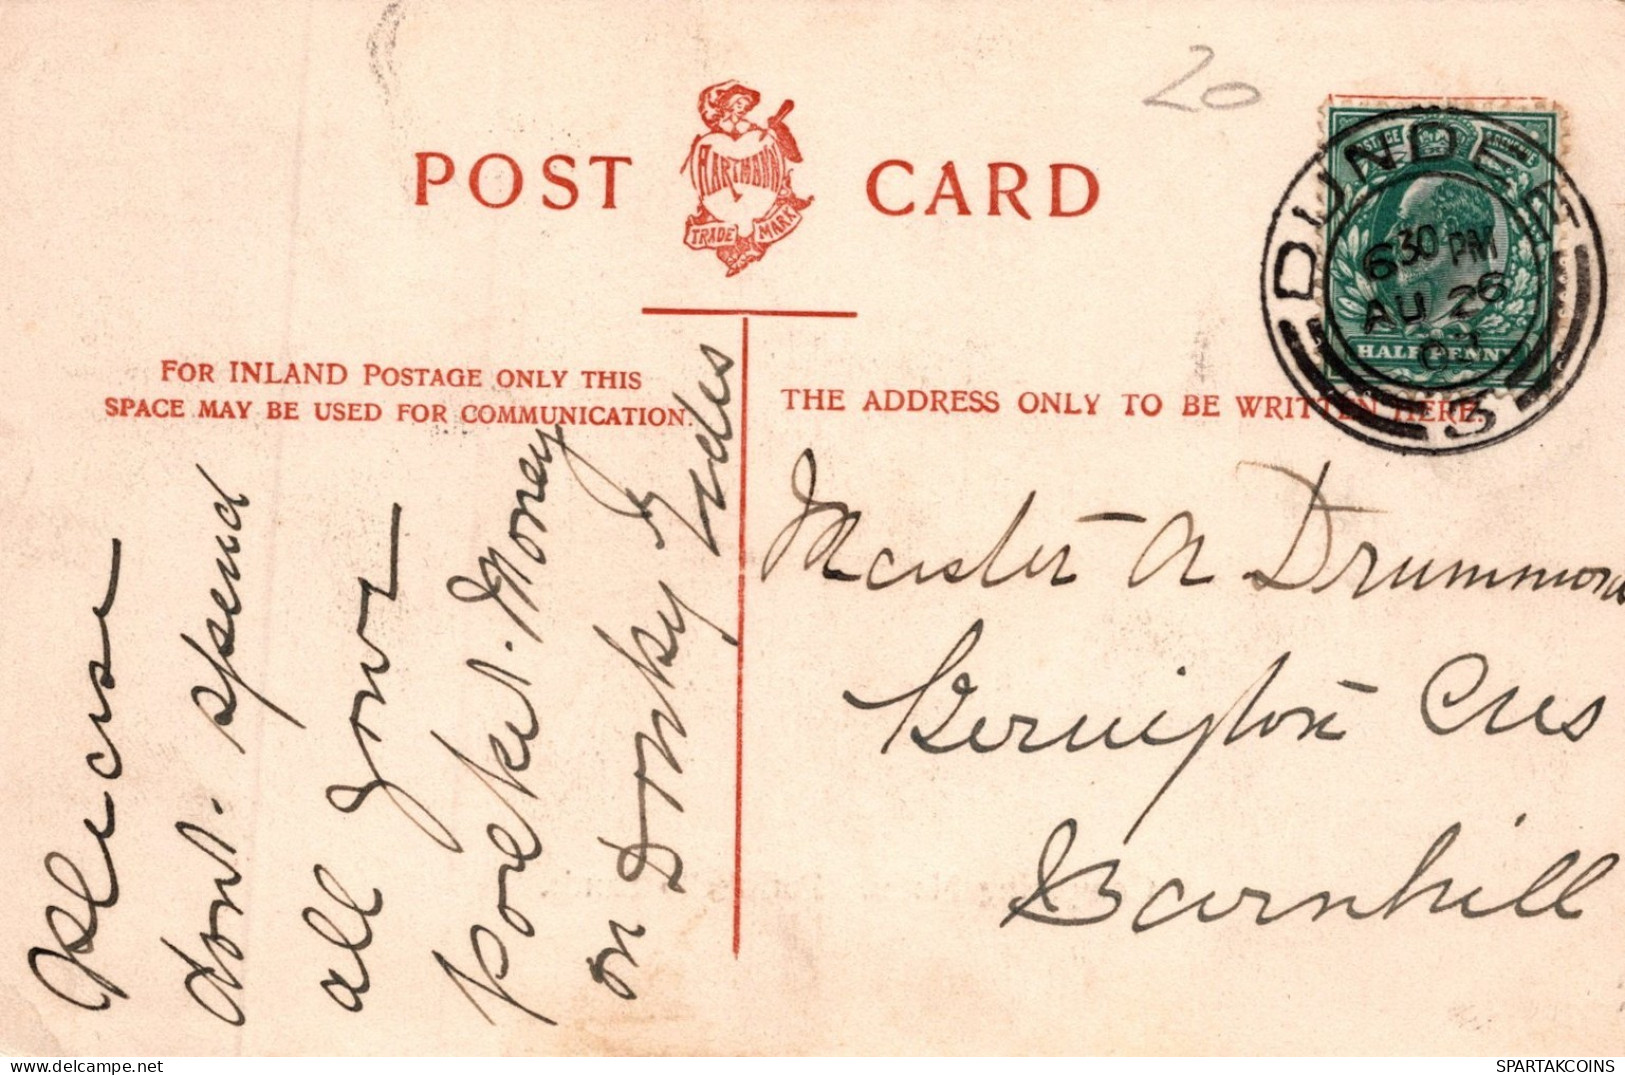 20
POST CARD
HARTMANN
TRADE MARK
POSTAGE REVENUE
HALFPENNY
DUNDEE
6 30 PM
AU 26
3
FOR INLAND POSTAGE ONLY THIS
SPACE MAY BE USED FOR COMMUNICATION.
THE ADDRESS ONLY TO BE WRITTEN HERE.
Please
dont. spend
all your
pocket. Money
on Donky Rides
Master A Drummond
Cres
Barnhill
SPARTAKCOINS